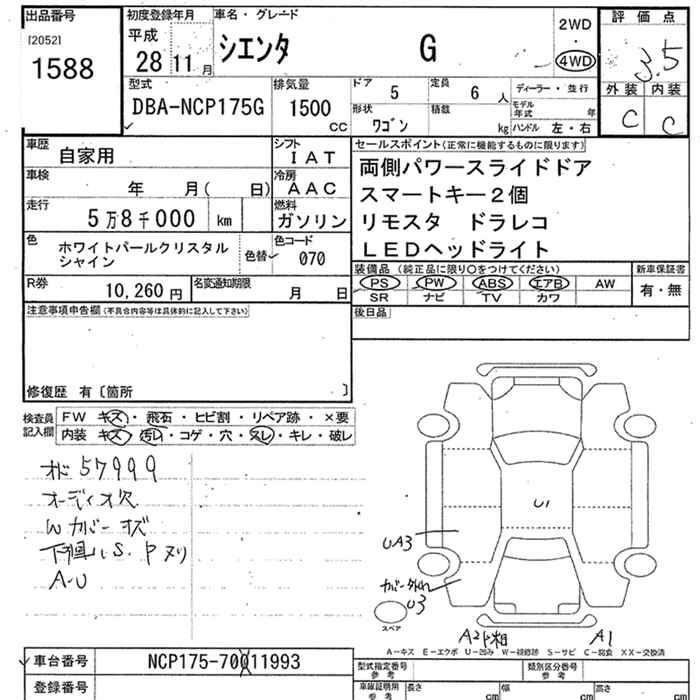 出品番号
[2052]
1588
初度登録年月
平成
28 11 月
車名・グレード
シエンタ G
2WD
・
4WD
評価点
3.5
外装 内装
C C
型式
DBA-NCP175G
排気量
1500
CC
ドア 5
定員 6 人
形状 ワゴン
積載 kg
ディーラー・並行
モデル年式 年
ハンドル 左・右
車歴
自家用
シフト
IAT
車検
年 月( 日)
冷房
AAC
走行
5万8千000 km
燃料
ガソリン
色
ホワイトパールクリスタル
シャイン
色替
色コード
070
R券
10,260 円
名変通知期限
月 日
セールスポイント(正常に機能するものに限ります)
両側パワースライドドア
スマートキー2個
リモスタ ドラレコ
LEDヘッドライト
装備品(純正品に限り○をつけてください)
新車保証書
PS PW ABS エアB AW
有・無
SR ナビ TV カワ
後日品
注意事項申告欄(不具合内容等は具体的に記入して下さい)
修復歴 有〔箇所 〕
検査員
記入欄
FW キズ・飛石・ヒビ割・リペア跡・×要
内装 キズ・汚レ・コゲ・穴・スレ・キレ・破レ
オド 57999
オーディオ欠
Wカバー キズ
下廻りS.Pヌリ
A-U
U1
UA3
カバー外れ
U3
スペア
A2 A1
A-キズ E-エクボ U-凹み W-補修跡 S-サビ C-腐食 XX-交換済
車台番号
NCP175-7011993
登録番号
型式指定番号
参考
類別区分番号
参考
車庫証明用
参考
長さ cm
幅 cm
高さ cm